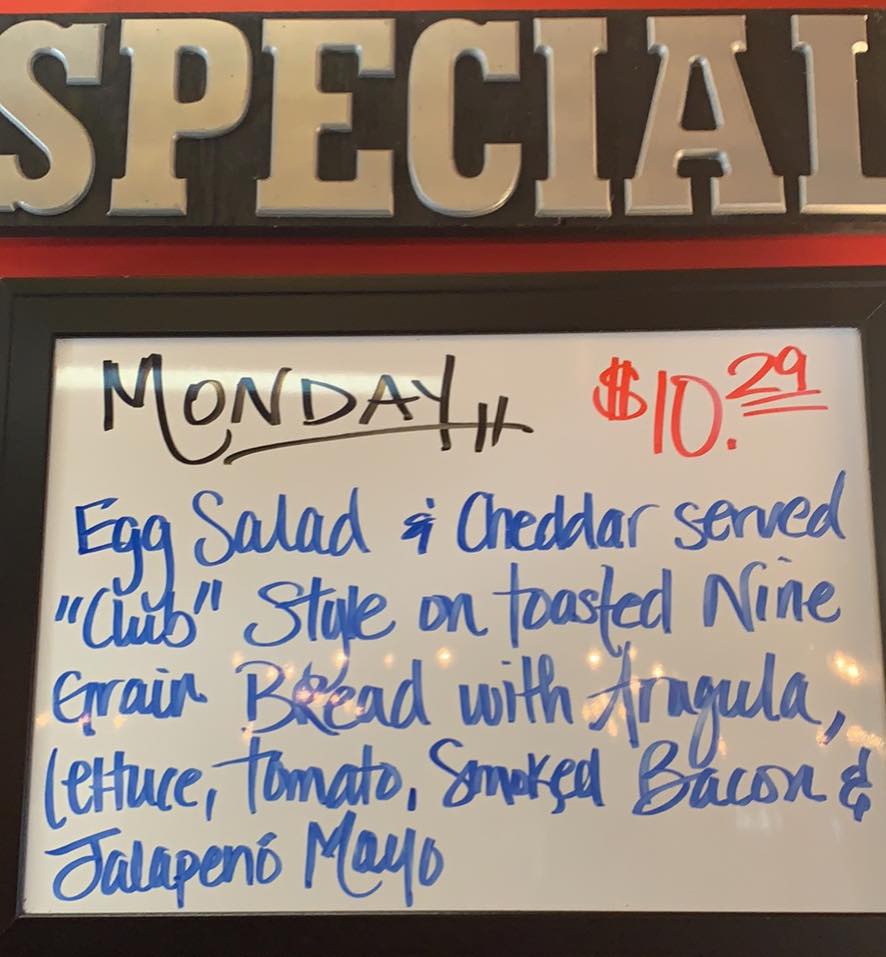 SPECIAL
MONDAY $10.29
Egg Salad & Cheddar served
"Club" Style on toasted Nine
Grain Bread with Arugula,
Lettuce, Tomato, Smoked Bacon &
Jalapenó Mayo